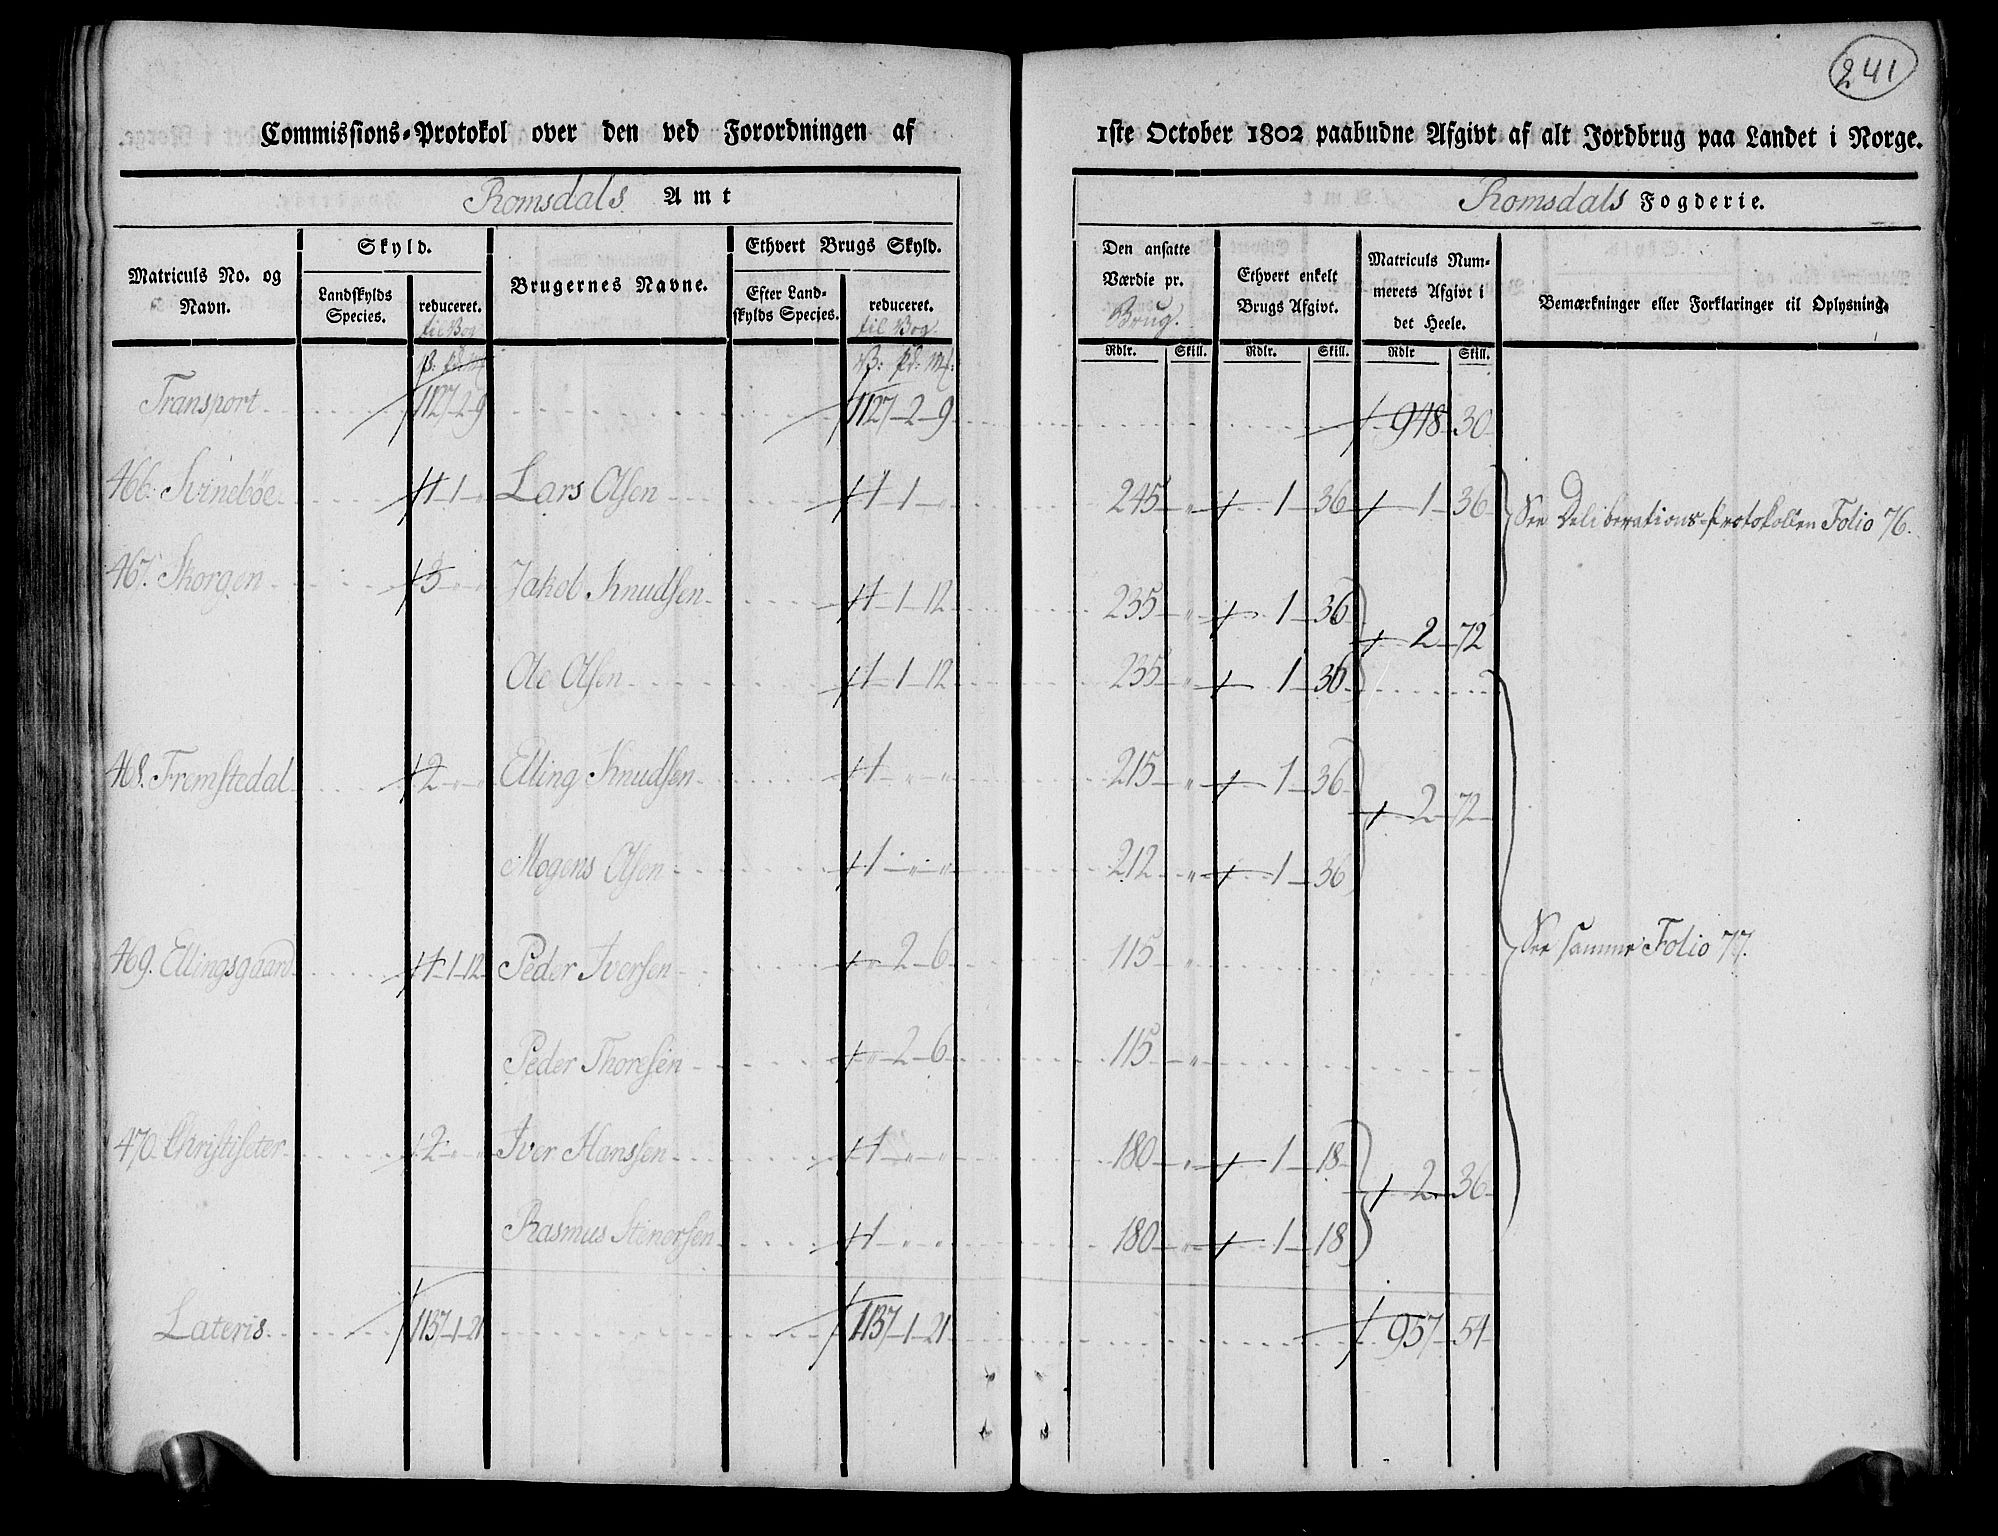 241
Commissions-Protokol over den ved Forordningen af 1ste October 1802 paabudne Afgivt af alt Jordbrug paa Landet i Norge.
Romsdals Amt
Romsdals Fogderie.
Matriculs No. og Navn.
Skyld.
Landskylds Species.
reduceret.
til Vog
Brugernes Navne.
Ethvert Brugs Skyld.
Efter Landskylds Species.
reduceret.
til Vog
Den ansatte Værdie pr.
Brug.
Ethvert enkelt Brugs Afgivt.
Matriculs Nummerets Afgivt i det Heele.
Bemærkninger eller Forklaringer til Oplysning.
Rdlr. Skill. Rdlr. Skill. Rdlr Skill.
V: pd: Mk:
Transport 1127-2-9 1127-2-9 948 30
466. Svinebøe 1-1-" Lars Olsen 1-1-" 245 " 1 36 1 36 See Deliberations-protokollen Folio 76.
467. Skorgen 3 " " Jakob Knudsen 1-1-12 235 " 1 36
2 72
Ole Olsen 1-1-12 235 " 1 36
468. Fremstedal 2 " " Elling Knudsen 1 " " 215 " 1 36
2 72
Mogens Olsen 1 " " 212 " 1 36
469. Ellingsgaard 1-1-12 Peder Iversen " 2 6 115 " See samme Folio 77.
Peder Thoresen " 2 6 115 "
470. Christiseter 2 " " Iver Hanssen 1 " " 180 " 1 18
2 36
Rasmus Stenersen 1 " " 180 " 1 18
Lateris 1137-1-21 1137-1-21 957 54